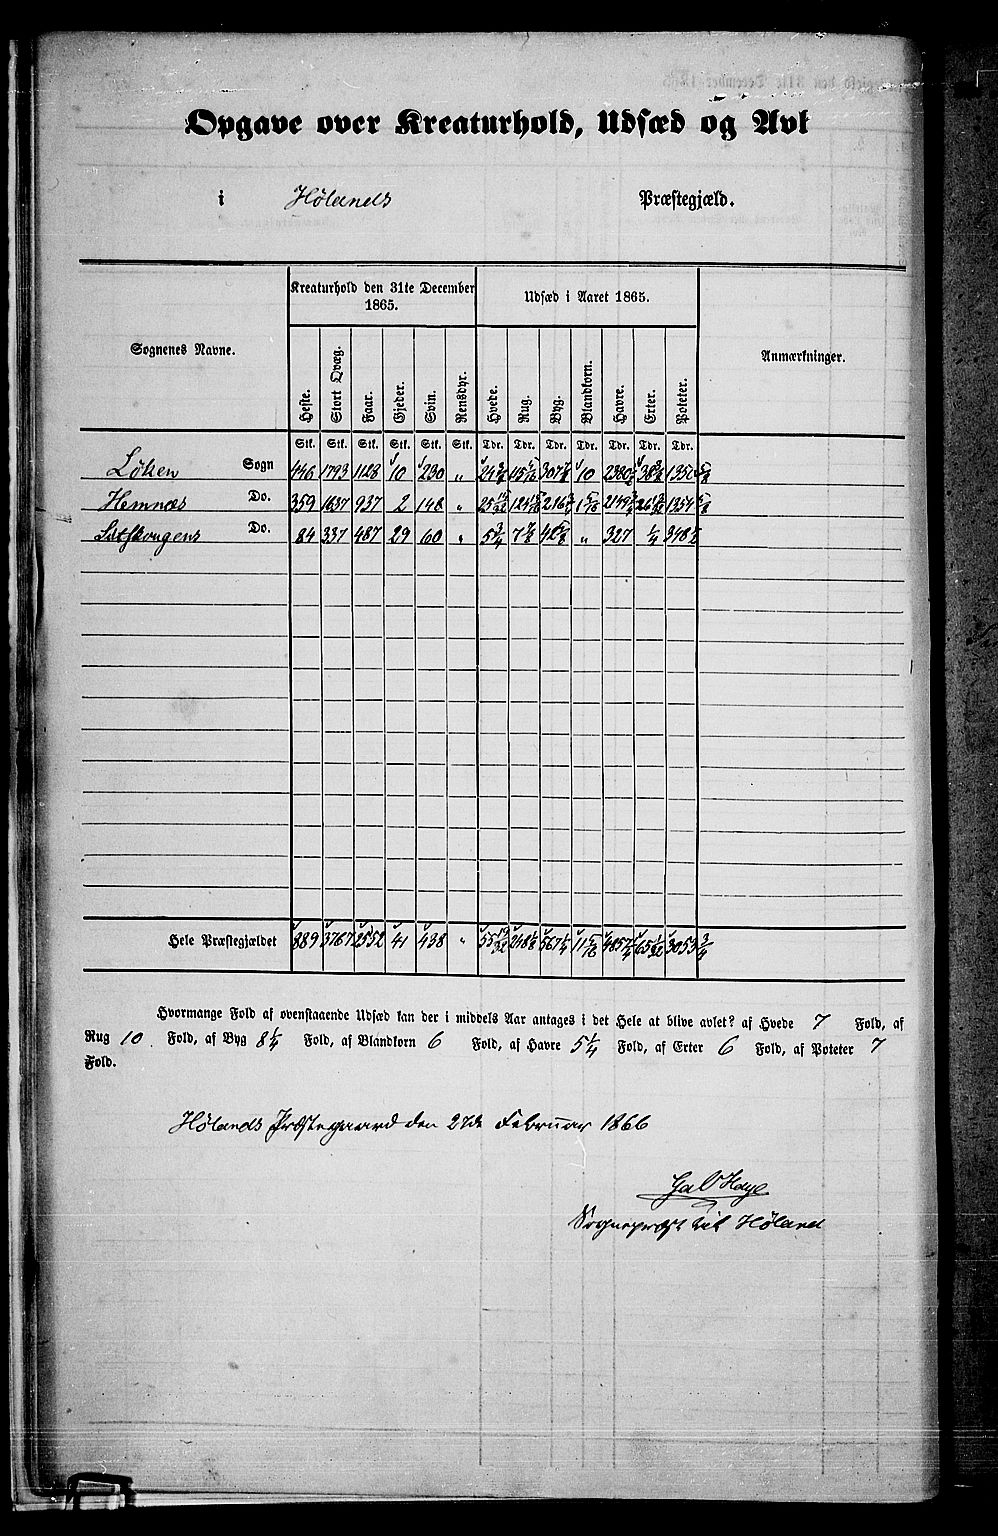 Opgave over Kreaturhold, Udsæd og Avl
i Hølands Præstegjæld.
Sognenes Navne. Kreaturhold den 31te December 1865. Udsæd i Aaret 1865. Anmærkninger.
Heste. Stort Qvæg. Faar. Gjeder. Svin. Rensdyr. Hvede. Rug. Byg. Blandkorn. Havre. Erter. Poteter.
Stk. Stk. Stk. Stk. Stk. Stk. Tdr. Tdr. Tdr. Tdr. Tdr. Tdr. Tdr.
Løken Sogn 446 1793 1128 10 230 „ 10
Hemnæs Do. 359 1637 937 2 148 „
Do. 84 337 487 29 60 „ 5 3/4 7 7/8 42 5/8 „ 327 1/4 348 1/2
Hele Præstegjældet 889 3767 2552 41 438 „ 55 19/32 248 1/8 567 1/4 11 5/16 3053 3/4
Hvormange Fold af ovenstaaende Udsæd kan der i middels Aar antages i det Hele at blive avlet? af Hvede 7 Fold, af
Rug 10. Fold, af Byg 8 1/4 Fold, af Blandkorn 6 Fold, af Havre 5 1/4 Fold, af Erter 6 Fold, af Poteter 7
Fold.
Hølands Præstegaard den 27de Februar 1866
Sognepræst til Høland